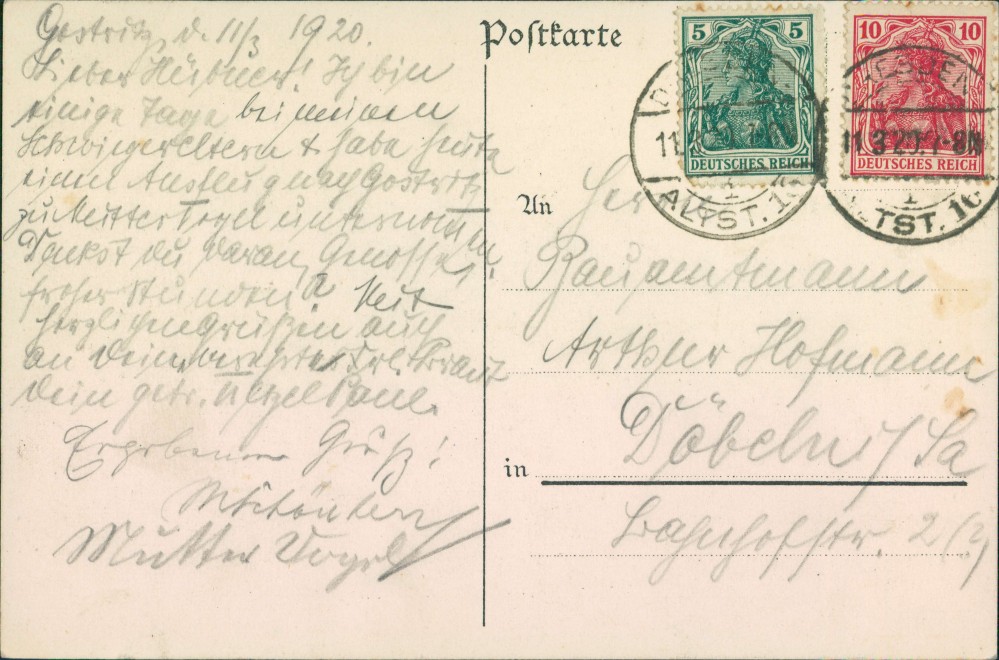 Gostritz, d. 11/3 1920.
Lieber Hübner! Ich bin
einige Tage bei meinen
Schwiegereltern & habe heute
einen Ausflug nach Gostritz
zu Mutter Vogel unternommen.
Denkst du daran, Genosse
froher Stunden? Mit
herzlichen Grüßen auch
an Deine verehrte Frl. Braut
Dein getr. Paul.
Ergebenen Gruß!
Mutter Vogel
Postkarte
5 5
DEUTSCHES REICH
10 10
DEUTSCHES REICH
DRESDEN
11.3.20. 7-8N.
ALTST. 16
An
Herrn
Bauamtmann
Arthur Hofmann
in
Döbeln i/Sa
Bahnhofstr. 2 (?)